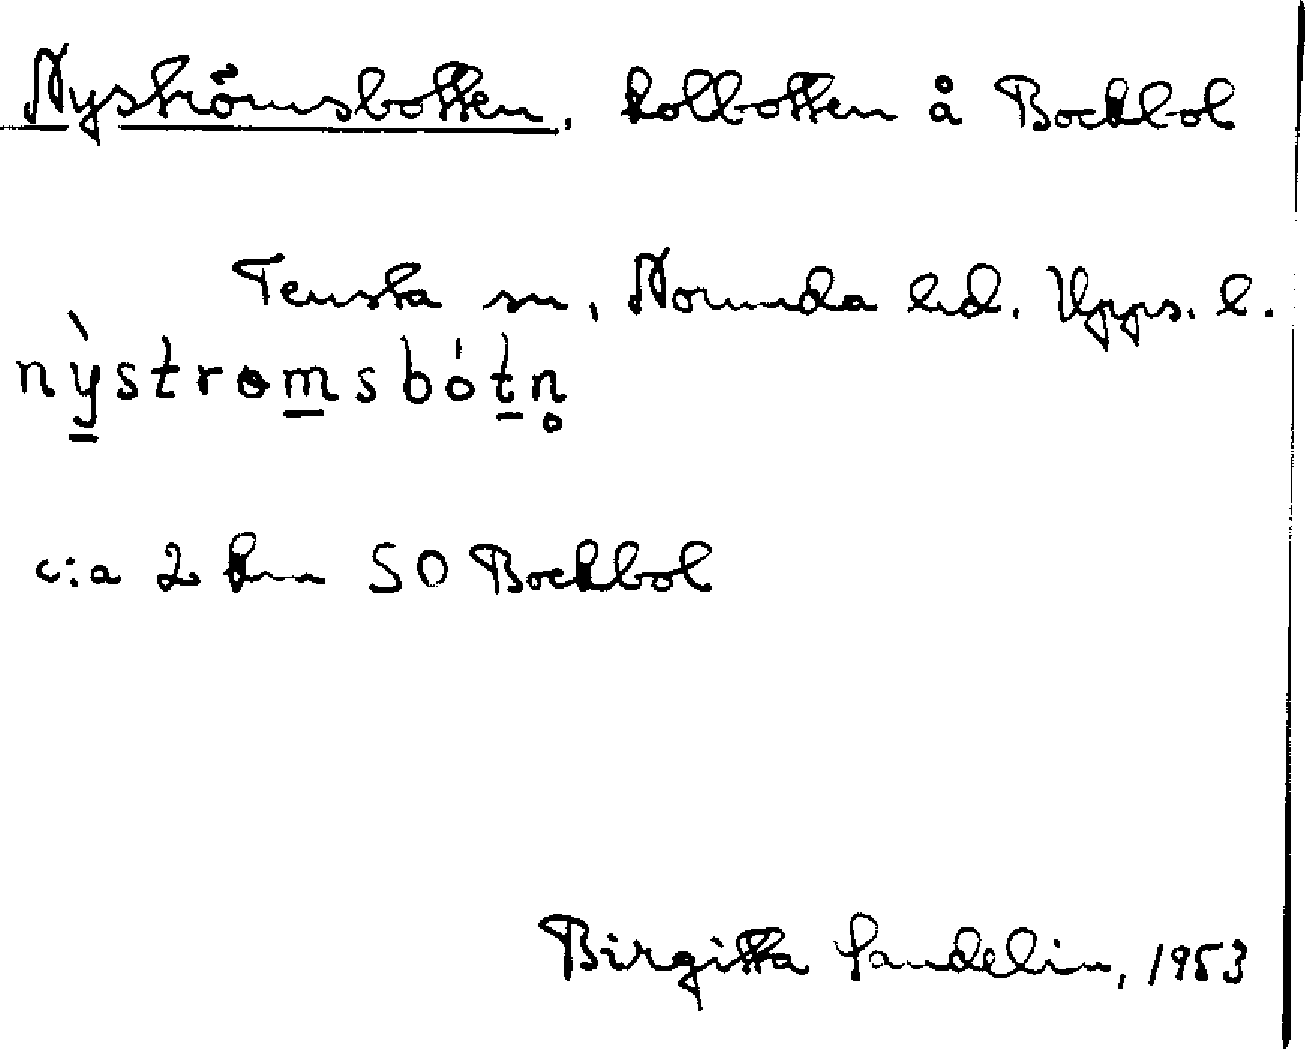 Nyströmsbotten, kolbotten å Bockbol
Tensta sn, Norunda hd. Upps. l.
nỳ̱strom̱sbótṉ̥
c:a 2 km SO Bockbol
Birgitta Sandelin, 1953